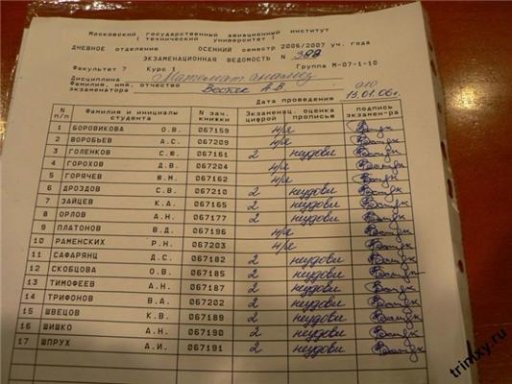 Московский государственный авиационный институт
( технический университет )
ДНЕВНОЕ отделение ОСЕННИЙ семестр 2006/2007 уч. года
ЭКЗАМЕНАЦИОННАЯ ВЕДОМОСТЬ №
Факультет 7 Курс 1 Группа М-07-1-10
Дисциплина Математ анализ
Фамилия, имя, отчество
экзаменатора А.В.
Дата проведения 13.01.06г.
N п/п Фамилия и инициалы студента N зач. книжки Экзаменац. оценка цифрой прописью подпись экзамен-ра
1 БОРОВИКОВА О.В. 067159 н/я
2 ВОРОБЬЕВ А.С. 067209 н/я
3 ГОЛЕНКОВ С.Ю. 067161 2 неудовл
4 ГОРОХОВ Д.В. 067204 н/я
5 ГОРЯЧЕВ Ю.М. 067162 н/я
6 ДРОЗДОВ С.В. 067210 2 неудовл
7 ЗАЙЦЕВ К.А. 067165 2 неудовл
8 ОРЛОВ А.Н. 067177 2 неудовл
9 ПЛАТОНОВ В.Д. 067196 н/я
10 РАМЕНСКИХ Р.Н. 067203 н/я
11 САФАРЯНЦ Д.С. 067182 2 неудовл
12 СКОБЦОВА О.В. 067185 2 неудовл
13 ТИМОФЕЕВ А.Н. 067187 2 неудовл
14 ТРИФОНОВ В.А. 067202 2 неудовл
15 ШВЕЦОВ К.В. 067189 2 неудовл
16 ШИШКО А.Н. 067190 2 неудовл
17 ШПРУХ А.И. 067191 2 неудовл
trinixy.ru